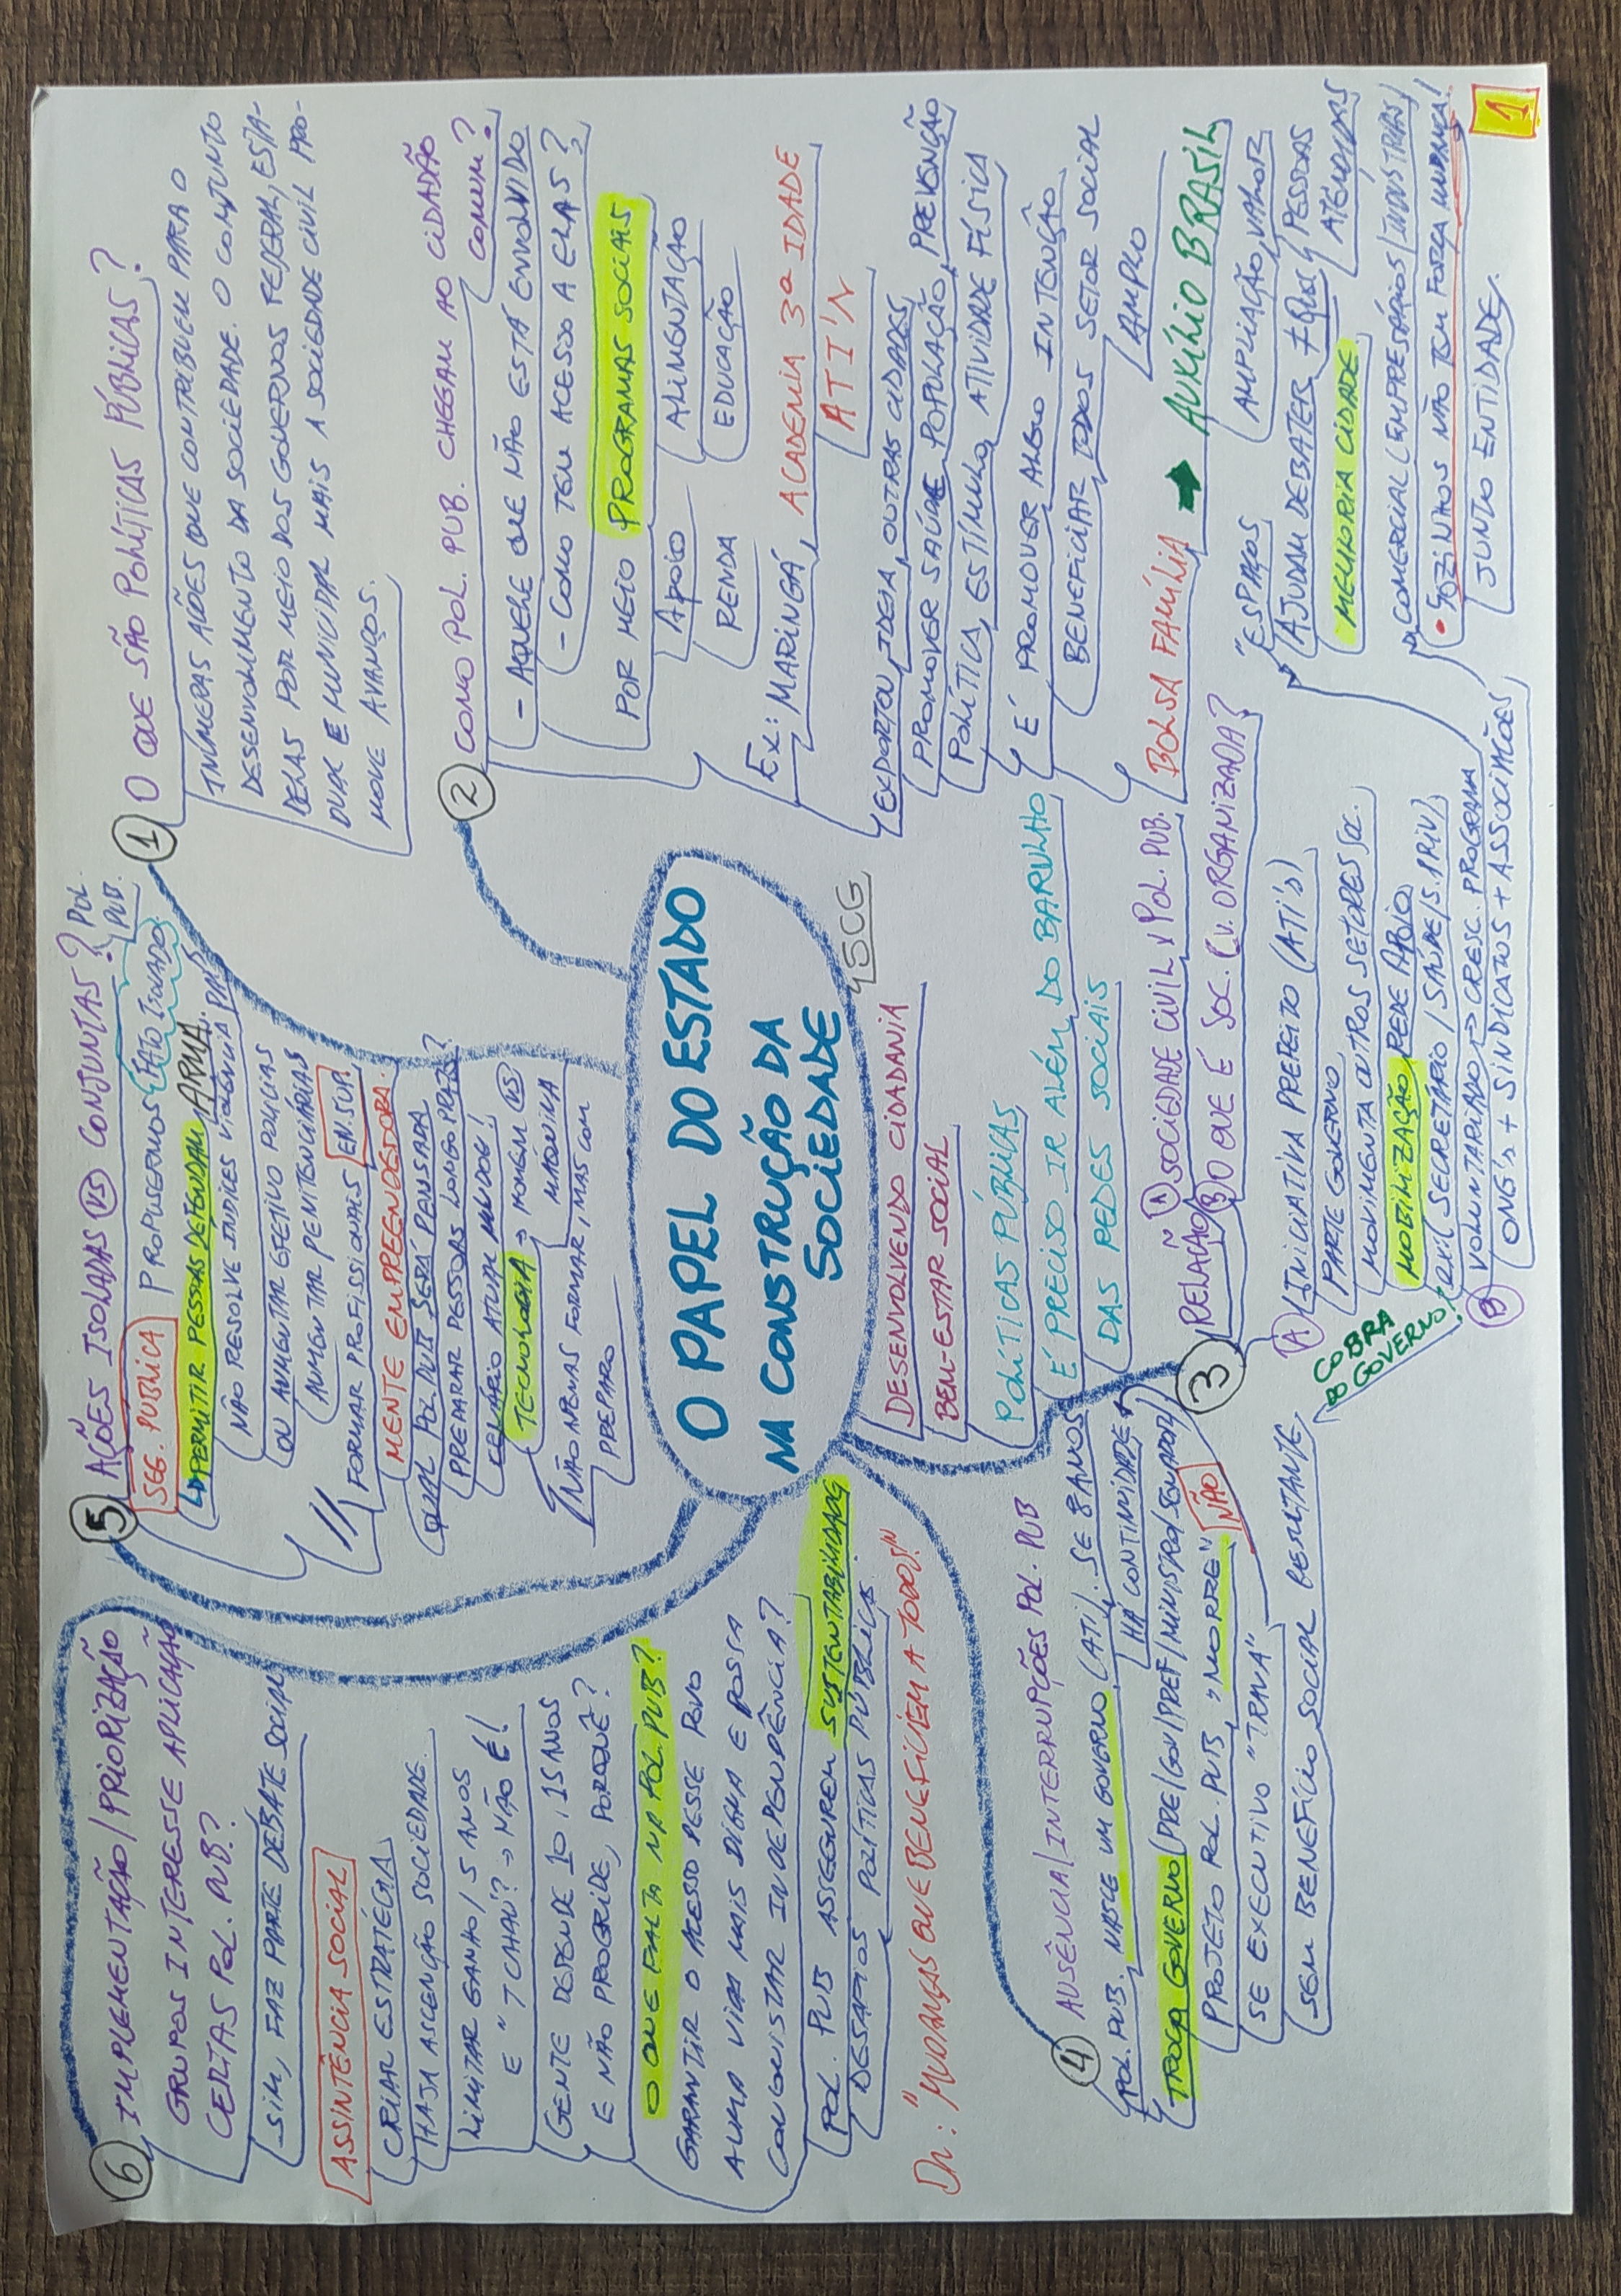 O PAPEL DO ESTADO
NA CONSTRUÇÃO DA
SOCIEDADE
SCG
DESENVOLVENDO CIDADANIA
BEM-ESTAR SOCIAL
POLÍTICAS PÚBLICAS
É PRECISO IR ALÉM DO BARULHO
DAS REDES SOCIAIS
1 O QUE SÃO POLÍTICAS PÚBLICAS?
INÚMERAS AÇÕES QUE CONTRIBUEM PARA O
DESENVOLVIMENTO DA SOCIEDADE. O CONJUNTO
DELAS POR MEIO DOS GOVERNOS FEDERAL, ESTA-
DUAL E MUNICIPAL MAIS A SOCIEDADE CIVIL PRO-
MOVE AVANÇOS.
2 COMO POL. PUB. CHEGAM AO CIDADÃO
COMUM?
- AQUELE QUE NÃO ESTÁ ENVOLVIDO
- COMO TEM ACESSO A ELAS?
POR MEIO PROGRAMAS SOCIAIS
APOIO ALIMENTAÇÃO
RENDA EDUCAÇÃO
EX: MARINGÁ, ACADEMIA 3ª IDADE
ATI'S
EXPORTOU IDEIA, OUTRAS CIDADES
PROMOVER SAÚDE POPULAÇÃO, PREVENÇÃO
POLÍTICA, ESTÍMULO, ATIVIDADE FÍSICA
É PROMOVER ALGO INTENÇÃO
BENEFICIAR, TODOS SETOR SOCIAL
AMPLO
BOLSA FAMÍLIA → AUXÍLIO BRASIL
AMPLIAÇÃO, VALOR
PESSOAS
ATENDIDAS
3 RELAÇÃO
A SOCIEDADE CIVIL X POL. PUB.
B O QUE É SOC. CIV. ORGANIZADA?
A INICIATIVA PREFEITO (ATI's)
PARTE GOVERNO
MOVIMENTA OUTROS SETORES SOC.
MOBILIZAÇÃO REDE APOIO
ex: (SECRETÁRIO / SAÚDE / S. PRIV)
B VOLUNTARIADO → CRESC. PROGRAMA
ONG's + SINDICATOS + ASSOCIAÇÕES
COBRA
DO GOVERNO!
"ESPAÇOS
AJUDAM DEBATER ≠
MELHORIA CIDADE
COMERCIAL (EMPRESÁRIOS / INDÚSTRIAS)
• SOZINHOS NÃO TEM FORÇA MUDANÇA!
JUNTO ENTIDADE
4 AUSÊNCIA/INTERRUPÇÕES POL. PUB
POL. PUB. NASCE UM GOVERNO (ATI), SE 8 ANOS
HÁ CONTINUIDADE
TROCA GOVERNO (PRE/GOV/PREF/MINISTRO/SENADOR)
PROJETO POL. PUB, "MORRE" NÃO
SE EXECUTIVO "TRAVA"
SEM BENEFÍCIO SOCIAL RESULTANTE
5 AÇÕES ISOLADAS VS CONJUNTAS? POL.
PUB.
SEG. PÚBLICA PROPUSERMOS FATO ISOLADO
PERMITIR PESSOAS DEFENDAM ARMA.
NÃO RESOLVE ÍNDICES VIOLÊNCIA
OU AUMENTAR EFETIVO POLÍCIAS
AUMENTAR PENITENCIÁRIAS
// FORMAR PROFISSIONAIS EN. SUP.
MENTE EMPREENDEDORA.
QUAL POL. PUB SERÁ PENSADA
PREPARAR PESSOAS LONGO PRAZO?
CENÁRIO ATUAL MUDOU!
TECNOLOGIA → HOMEM VS
MÁQUINA
NÃO APENAS FORMAR, MAS COM
PREPARO
6 IMPLEMENTAÇÃO/PRIORIZAÇÃO
GRUPOS INTERESSE APLICAÇÃO
CERTAS POL. PUB.?
SIM, FAZ PARTE DEBATE SOCIAL
ASSINTÊNCIA SOCIAL
CRIAR ESTRATÉGIA
HAJA ASCENÇÃO SOCIEDADE.
LIMITAR GANHO / 5 ANOS
E "TCHAU"? → NÃO É!
GENTE DEPENDE 10, 15 ANOS
E NÃO PROGRIDE, PORQUÊ?
O QUE FALTA NA POL. PUB?
GARANTIR O ACESSO DESSE POVO
A UMA VIDA MAIS DIGNA E POSSA
CONQUISTAR INDEPENDÊNCIA?
POL. PUB ASSEGUREM SUSTENTABILIDADE
DESAFIOS POLÍTICAS PÚBLICAS
"MUDANÇAS QUE BENEFICIEM A TODOS!"
1